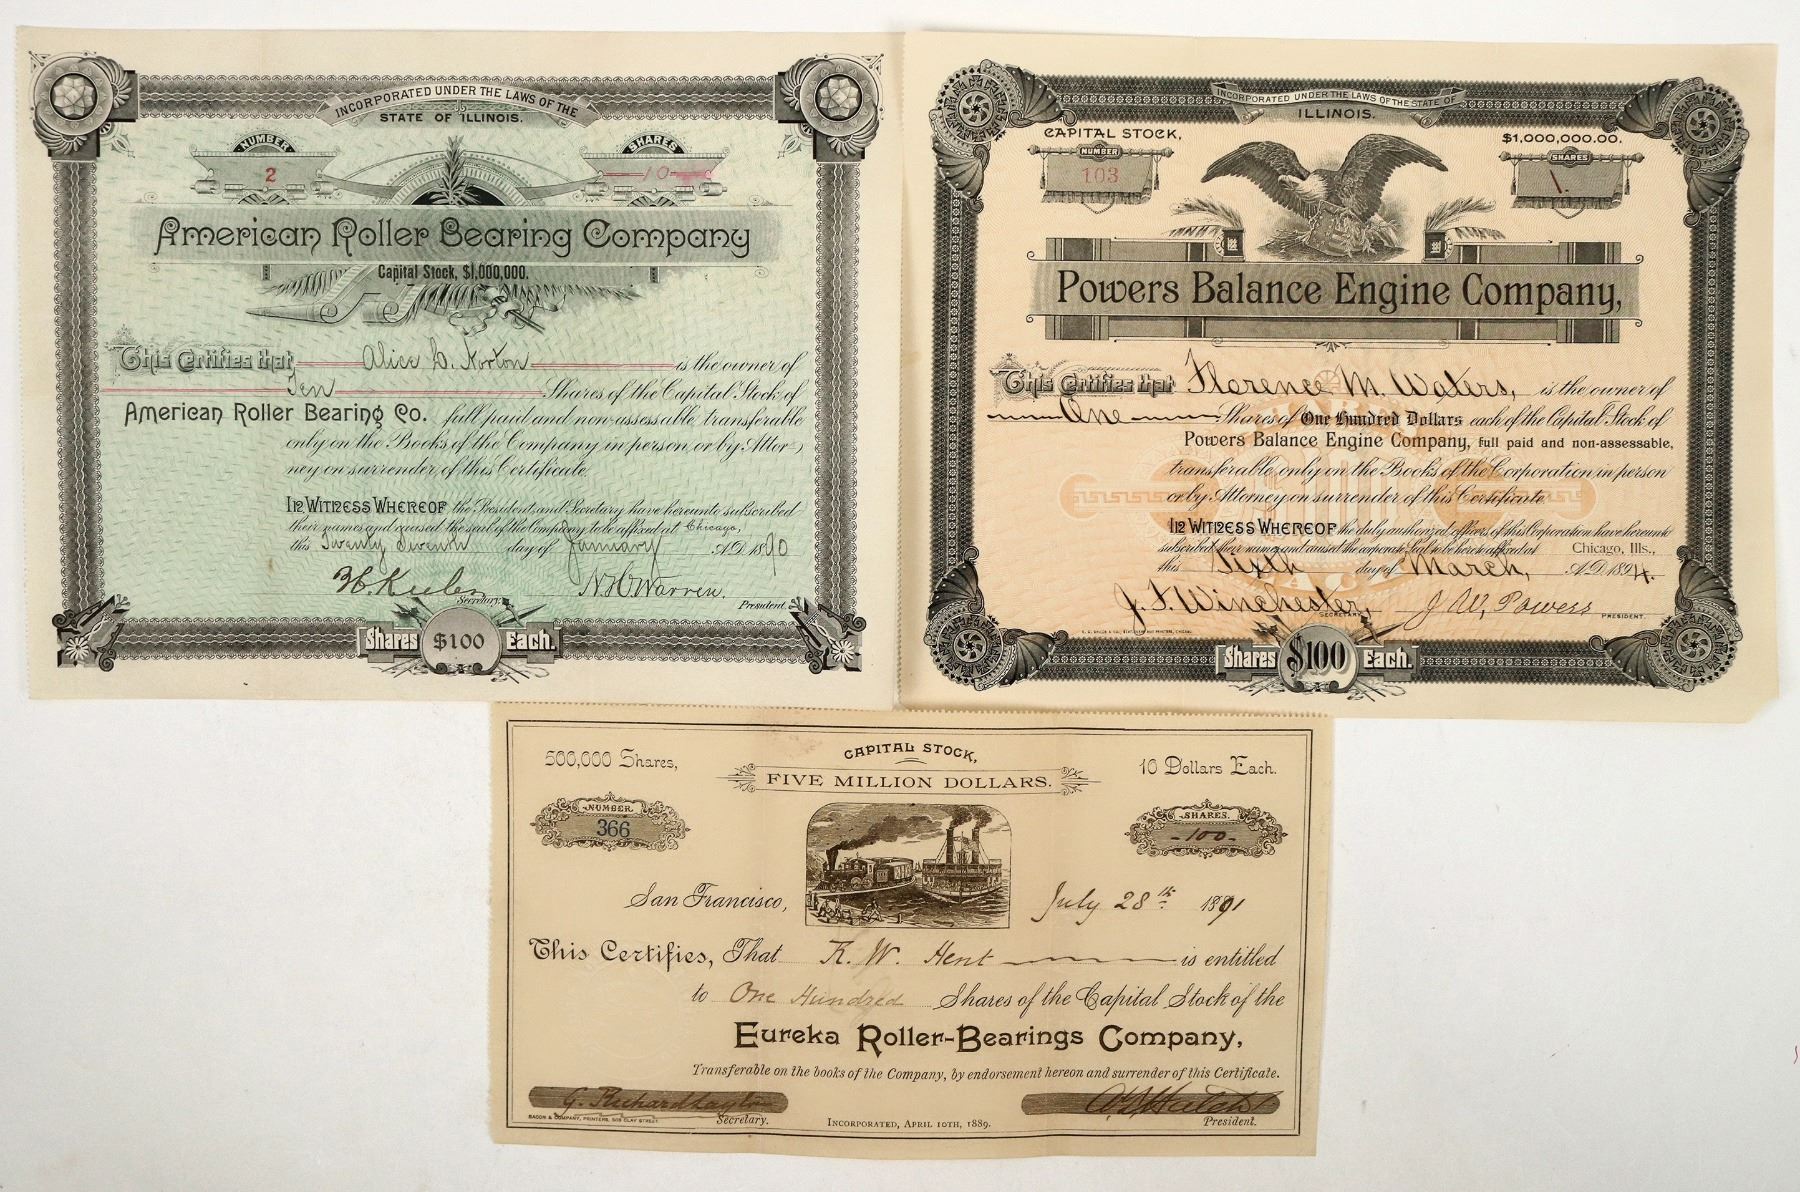 INCORPORATED UNDER THE LAWS OF THE
STATE OF ILLINOIS.
NUMBER
2
SHARES
10
American Roller Bearing Company
Capital Stock, $1,000,000.
This Certifies that Alice L. Norton is the owner of
Ten Shares of the Capital Stock of
American Roller Bearing Co. full paid and non-assessable, transferable
only on the Books of the Company in person, or by Attor-
ney on surrender of this Certificate.
In Witness Whereof the President and Secretary have hereunto subscribed
their names and caused the seal of the Company to be affixed at Chicago,
this Twenty Seventh day of January A.D. 1890
Secretary.
N. H. Warren.
President.
Shares $100 Each.
INCORPORATED UNDER THE LAWS OF THE STATE OF
ILLINOIS.
CAPITAL STOCK,
$1,000,000.00.
NUMBER
103
SHARES
1.
Powers Balance Engine Company,
This Certifies that Florence M. Waters, is the owner of
One Shares of One Hundred Dollars each of the Capital Stock of
Powers Balance Engine Company, full paid and non-assessable,
transferable only on the Books of the Corporation, in person
or by Attorney on surrender of this Certificate.
In Witness Whereof the duly authorized officers of this Corporation have hereunto
subscribed their names and caused the corporate Seal to be hereto affixed at Chicago, Ills.,
this Sixth day of March, A.D. 1894.
J. F. Winchester,
SECRETARY.
J. W. Powers
PRESIDENT.
Shares $100 Each.
500,000 Shares,
CAPITAL STOCK,
FIVE MILLION DOLLARS.
10 Dollars Each.
NUMBER.
366
SHARES.
-100-
San Francisco, July 28th 1891
This Certifies, That R. W. Hent is entitled
to One Hundred Shares of the Capital Stock of the
Eureka Roller-Bearings Company,
Transferable on the books of the Company, by endorsement hereon and surrender of this Certificate.
BACON & COMPANY, PRINTERS, 508 CLAY STREET.
Secretary.
INCORPORATED, APRIL 10TH, 1889.
President.